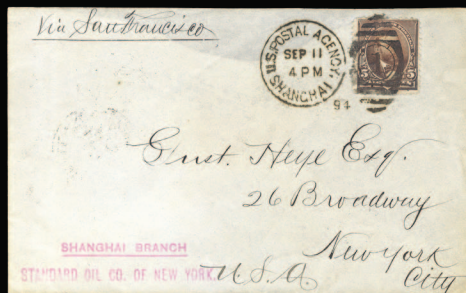 Via San Francisco
U.S. POSTAL AGENCY,
SEP 11
4 PM
94
SHANGHAI
5
Gust. Heye Esq.
26 Broadway
New York
City
U.S.A.
SHANGHAI BRANCH
STANDARD OIL CO. OF NEW YORK.